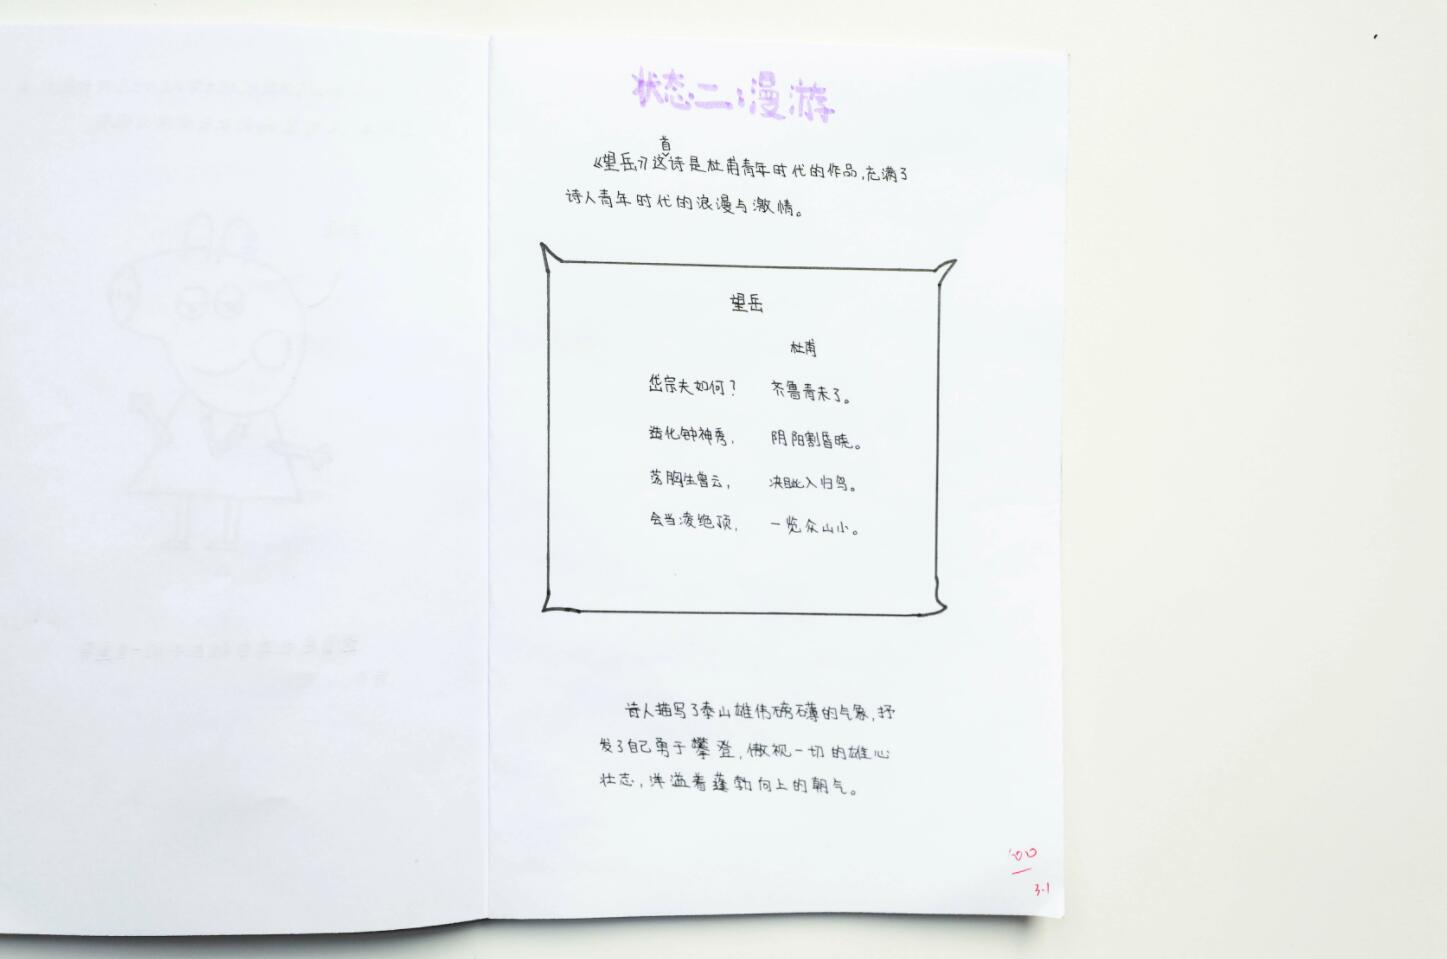 状态二：漫游
《望岳》这首诗是杜甫青年时代的作品，充满了
诗人青年时代的浪漫与激情。
望岳
杜甫
岱宗夫如何？ 齐鲁青未了。
造化钟神秀， 阴阳割昏晓。
荡胸生曾云， 决眦入归鸟。
会当凌绝顶， 一览众山小。
诗人描写了泰山雄伟磅礴的气象，抒
发了自己勇于攀登，傲视一切的雄心
壮志，洋溢着蓬勃向上的朝气。
100
3.1